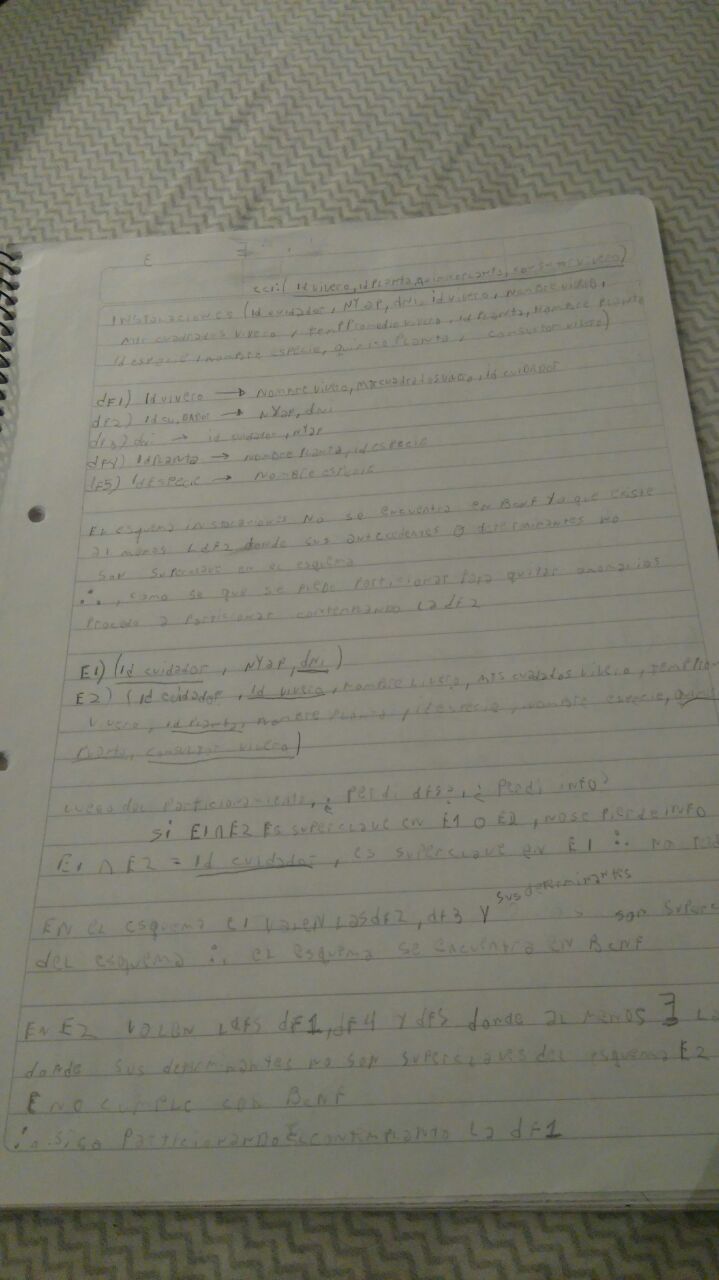 cci: (Id vivero, id Planta, quimicoPlanta, consultor vivero)
INSTALACIONES (Id cuidador, NYAP, dni, id vivero, Nombre vivero,
Mtr cuadrados vivero, tempPromediovivero, id Planta, Nombre Planta
Id especie, nombre especie, quimico Planta, consultor vivero)
dF1) Id vivero → Nombre vivero, Mtrcuadrados vivero, id cuidador
dF2) Id cuidador → NYAP, dni
dF3) dni → id cuidador, NYAP
dF4) IdPlanta → Nombre Planta, id especie
dF5) IdEspecie → Nombre especie
El esquema instalaciones No se encuentra en BcNF Ya que existe
al menos 1 dF2 donde sus antecedentes o determinantes no
son superclave en el esquema
∴, como se que se puede particionar para quitar anomalias
Procedo a Particionar contemplando la dF2
E1) (Id cuidador, NYAP, dni)
E2) (Id cuidador, Id vivero, Nombre Vivero, Mts cuadrados vivero, tempProm
vivero, id Planta, nombre Planta, id especie, nombre especie, quimi
Planta, consultor vivero)
Luego del Particionamiento, ¿ Perdi dFs?, ¿ Perdi info?
si E1∩E2 Es superclave en E1 o E2, No se Pierde info
E1 ∩ E2 = Id cuidador, es superclave en E1 ∴ No
EN el esquema E1 valen las dF2, dF3 Y sus determinantes son super
del esquema ∴ el esquema se encuentra en BcNF
EN E2 valen las dF1, dF4 Y dF5 donde al menos
donde sus determinantes no son superclaves del esquema E2
E no cumple con BcNF
∴ sigo Particionando contemplando la dF1